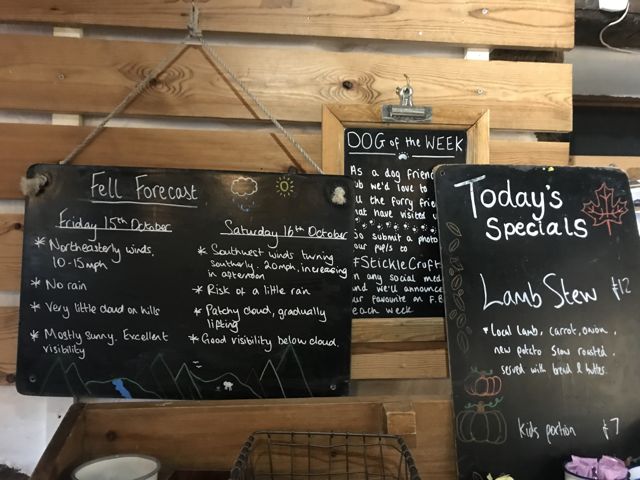 Fell Forecast
Friday 15th October
* Northeasterly winds,
10-15mph
* No rain
* Very little cloud on hills
* Mostly sunny. Excellent
visibility
Saturday 16th October
* Southwest winds turning
southerly. 20mph, increasing
in afternoon
* Risk of a little rain
* Patchy cloud, gradually
lifting
* Good visibility below cloud.
DOG of the WEEK
As a dog friend
ub we'd love to
ll the furry frie
hat have visited u
So submit a photo
our pup/s to
#StickleCroft
on any social med
and we'll announce
our favourite on F.B
each week
Today's
Specials
Lamb Stew £12
* Local lamb, carrot, onion,
new potato slow roasted.
served with bread & butter.
Kids portion £7